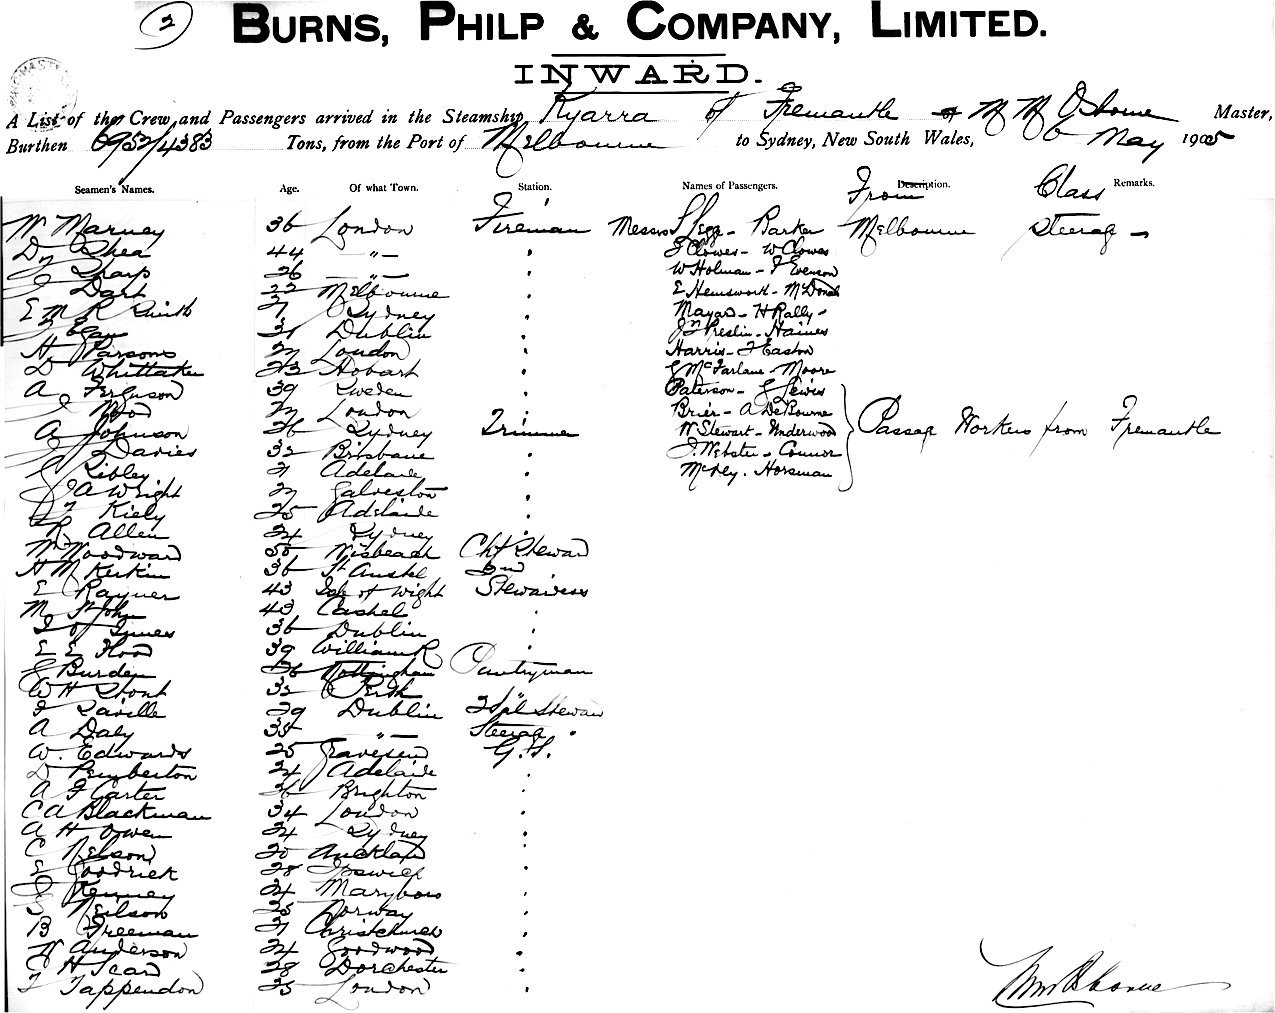 2
BURNS, PHILP & COMPANY, LIMITED.
INWARD.
A List of the Crew and Passengers arrived in the Steamship Kyarra of Fremantle M M Osborne Master,
Burthen 6952/4383 Tons, from the Port of Melbourne to Sydney, New South Wales, 6 May 1905
Seamen's Names. Age. Of what Town. Station. Names of Passengers. Description. From Class Remarks.
W Marney 36 London Fireman Messrs Legg - Barker Melbourne Steerag -
Dy Shea 44 -"- " J Clowes - W Clowes
J Sharp 26 -"- " W Holman - F Evenson
J Dart 22 Melbourne " E Hemsworth - McDonald
E M R Smith Sydney " Mayar - H Rally -
Egan 31 Dublin " Jno Preslin - Haines
H Parsons London " Harris - F Easton
D Whittaker 23 Hobart " G McFarlane - Moore
A Ferguson 39 Sweden " Paterson - G Lewis
J Wood London " Brier - A De Bourne
A Johnson 26 Sydney Trimmer W Stewart - Underwood Passag Workers from Fremantle
J Davies 32 Brisbane " J. Webster - Connor
G Sibley Adelaide " McVey. Horsman
J A Wright Galveston "
J Kiely 25 Adelaide "
R Allen 24 Sydney "
W Woodward 55 Wisbeach Chf Steward
H M Kerkin 36 St Austel 2nd
E Rayner 43 Isle of Wight Stewardess
M St John 43 Cashel "
Innes 36 Dublin "
E E Flood 39 William R "
G Burden 36 Nottingham Pantryman
W H Stout 32 Perth "
F Saville 29 Dublin 2 Spl Steward
A Daly 35 -"- Steerag "
W. Edwards 25 Gravesend G.S.
D Pemberton 24 Adelaide "
A F Carter 36 Brighton "
C A Blackman 34 London "
A H Owen 24 Sydney "
C Nelson 20 Auckland "
E Goodrick 28 Ipswich "
J Kenney 24 Maryboro "
Neilson 25 Norway "
B Freeman Christchurch "
W Anderson 24 Goodwood "
C H Scard 28 Dorchester "
T Tappendon 35 London "